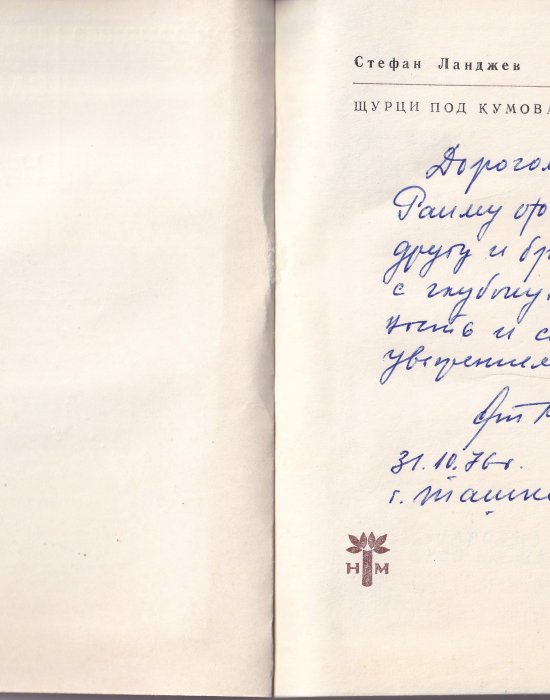 Стефан Ланджев
ЩУРЦИ ПОД КУМОВА
Дорогом
Раиму
другу и бр
с глубоку
ность и с
уверением
От
31.10.76г.
г. Ташке
НМ